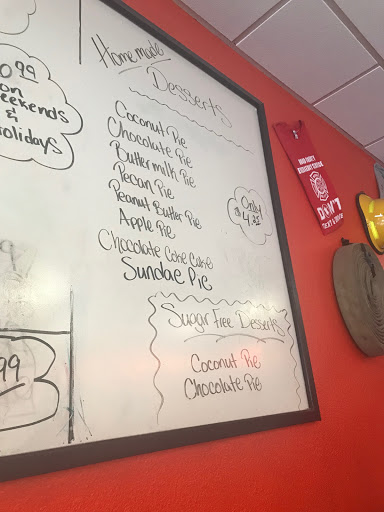 99
on
eekends
&
olidays
99
Homemade
Desserts
Coconut Pie
Chocolate Pie
Buttermilk Pie
Pecan Pie
Peanut Butter Pie
Apple Pie
Chocolate Coke Cake
Sundae Pie
Only
$
Sugar Free Desserts
Coconut Pie
Chocolate Pie
DON'T